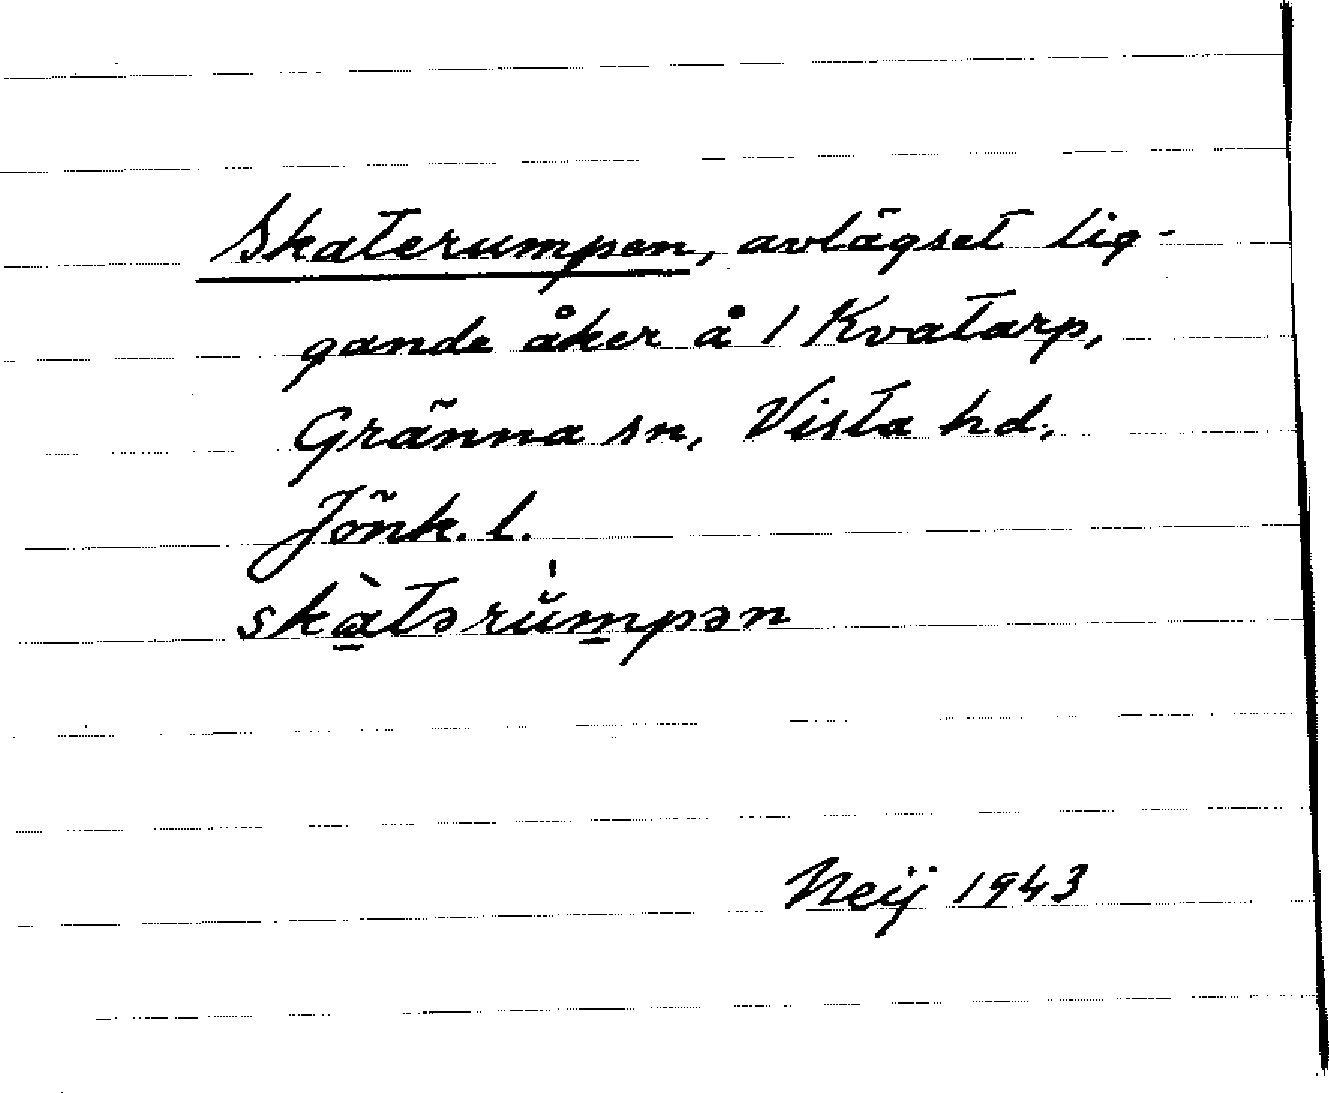 Skaterumpen, avlägset lig-
gande åker å 1 Kvatarp,
Gränna sn, Vista hd,
Jönk. l.
skà̱tərŭ̍m̱pən
Neij 1943